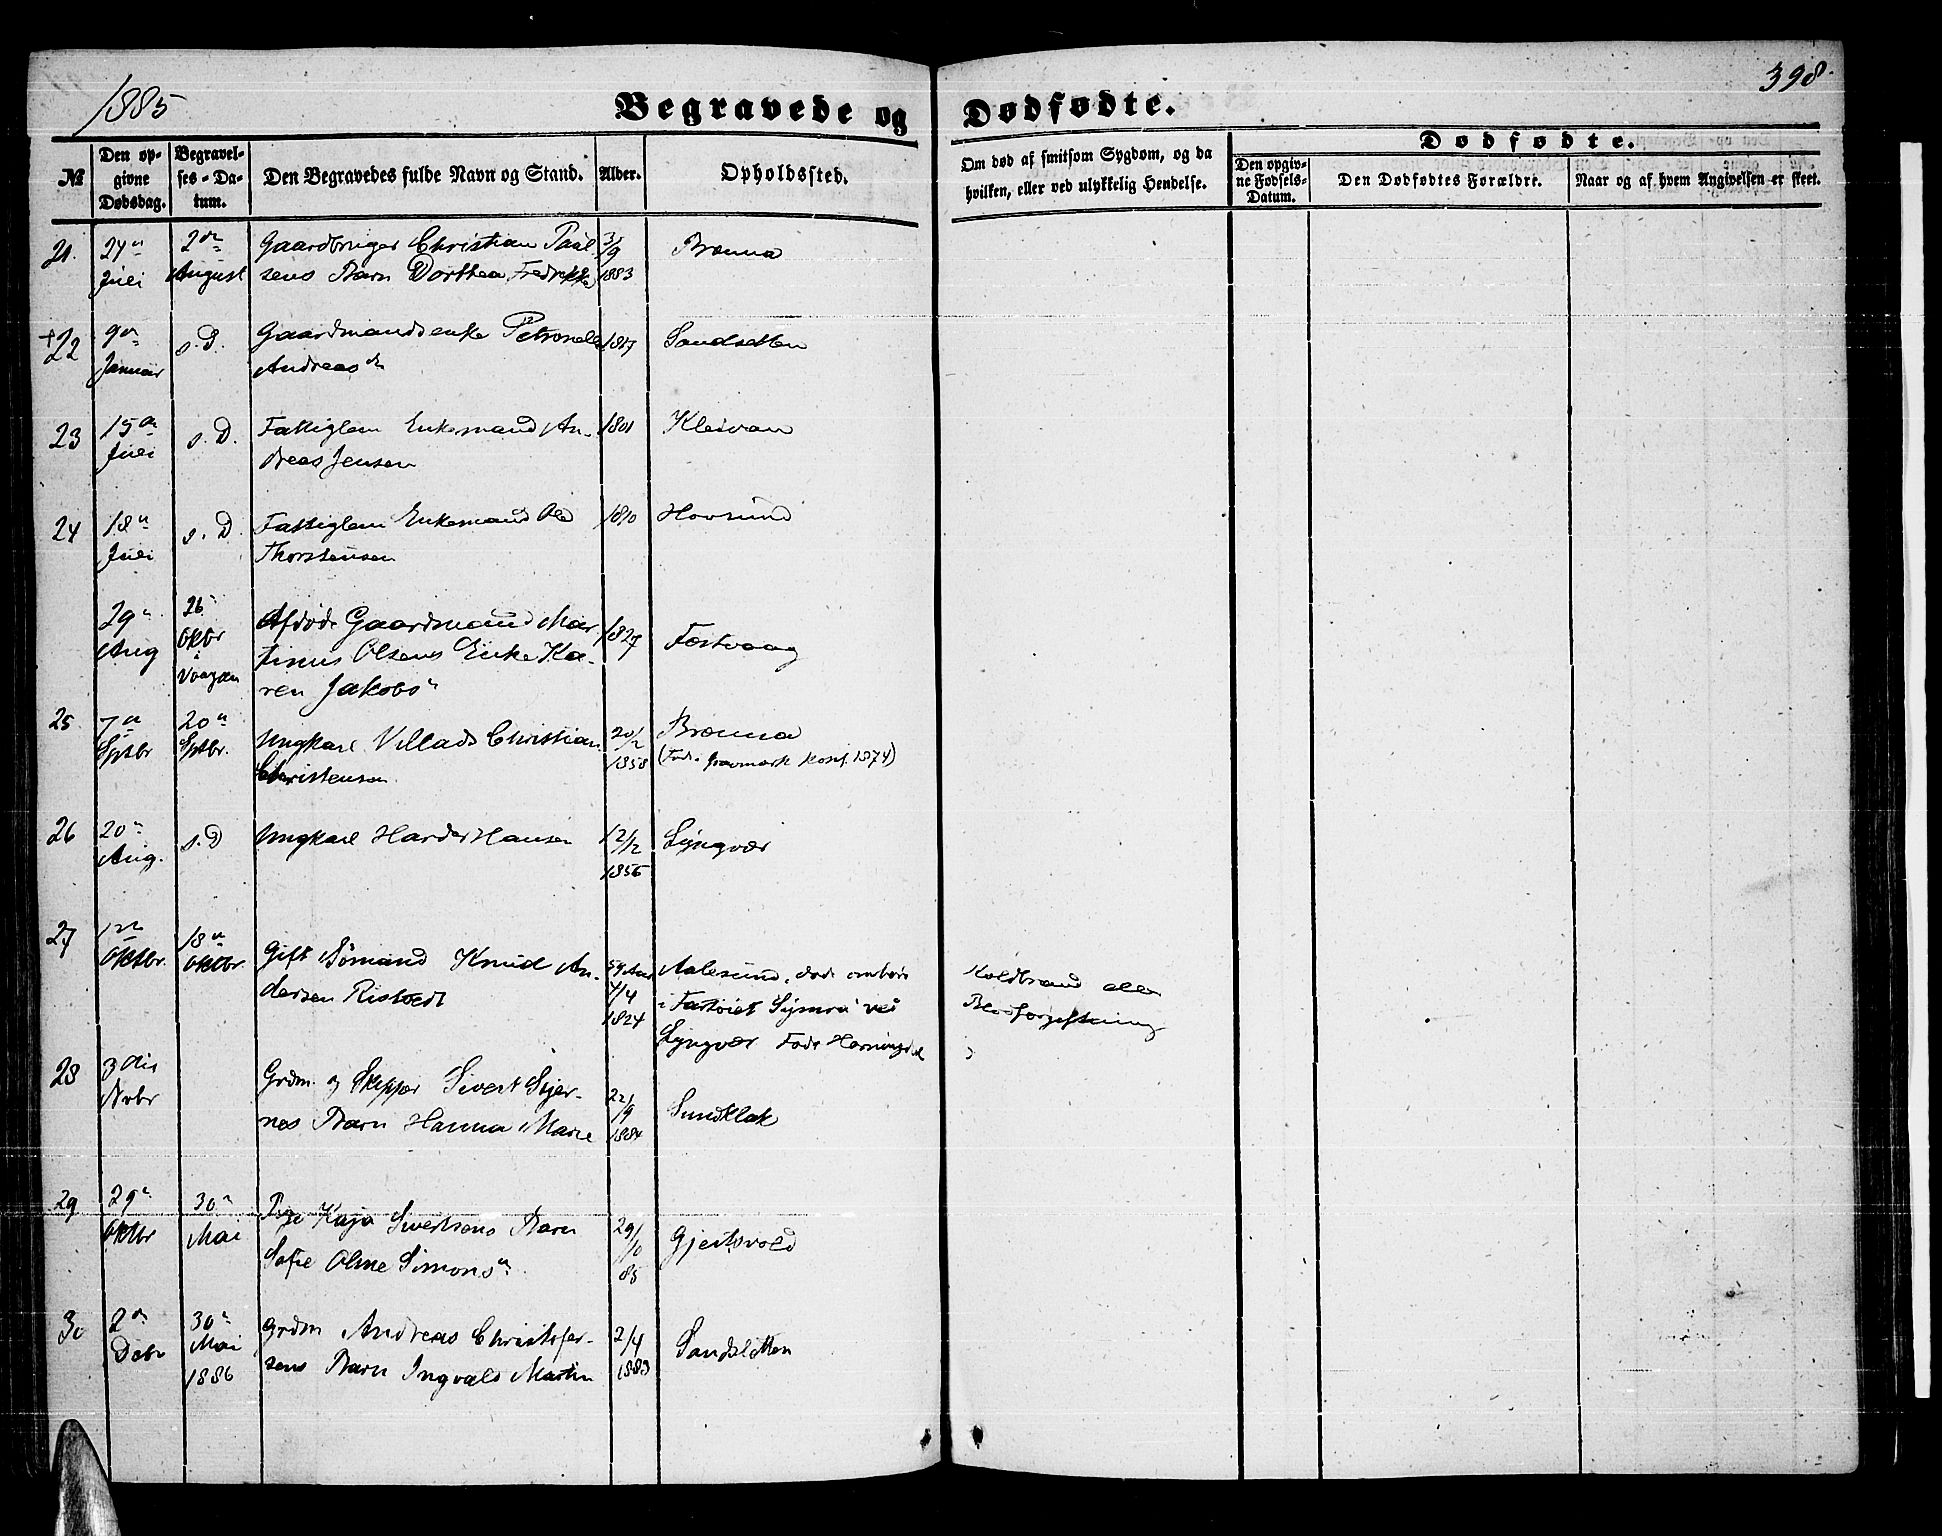 1885
398
Begravede og Dødfødte.
№
Den op-
givne
Dødsdag.
Begravel-
ses-Da-
tum.
Den Begravedes fulde Navn og Stand.
Alder.
Opholdssted.
Om død af smitsom Sygdom, og da
hvilken, eller ved ulykkelig Hendelse.
Dødfødte.
Den opgiv-
ne Fødsels-
Datum.
Den Dødfødtes Forældre.
Naar og af hvem Angivelsen er skeet.
21.
24n
Juli
2dn
August
Gaardbruger Christian Paul
sens Barn Dorthea Fredrikke
3/9
1883
Brenna
+22
9dn
Januar
s. D.
Gaardmandsenke Petronele
Andreasdr
1817
Sandsletten
23
15dn
Juli
s. D.
Fattiglem Enkemand An-
dreas Jensen
1801
Kleivan
24
18n
Juli
s. D
Fattiglem Enkemand Ole
Thorstensen
1810
Hovsund
29n
Aug
26
Oktbr
i
Vaagan
Afdøde Gaardmand Mar
tinus Olsens Enke Ka-
ren Jakobsn
1827
Festvaag
25
7n
Sptbr
20n
Sptbr.
Ungkarl Villads Christian
Christensen
20/2
1858
Brenna
(Født i Gravmark Konf. 1874)
26
20n
Aug.
s. D
Ungkarl Harder Hansen
12/12
1856
Lyngvær
27
12te
Oktbr.
18n
Oktbr.
Gift Sømand Knud An-
dersen Ristvedt
59 Aar
4/4
1824
Aalesund, døde ombord
i Fartøiet Symra ved
Lyngvær Født Horningdal
Koldbrand eller
Blodforgiftning
28
3die
Nvbr
Grdm. og Skipper Sivert Stjer-
nes Barn Hanna Marie
22/9
1884
Sundklak
29
29n
Oktbr
30n
Mai
Pige Kaja Sivertsens Barn
Sofie Oline Simonsn
29/10
85
Gjertsvold
30
2dn
Debr
30n
Mai
1886
Grdm Andreas Christofer-
sens Barn Ingvald Martin
2/4
1883
Sandsletten